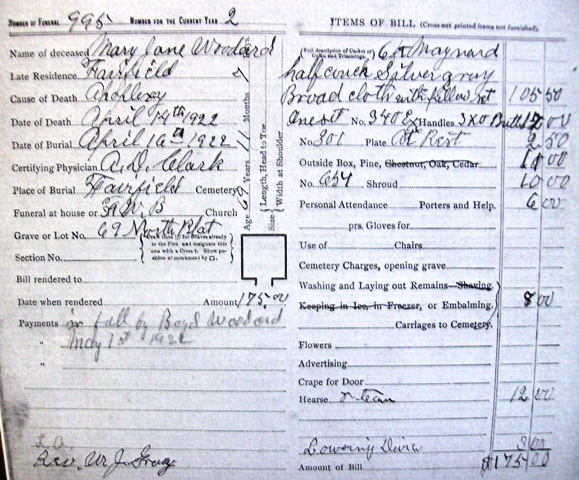 Number of Funeral 995 Number for the Current Year 2
Name of deceased Mary Jane Woodard
Late Residence Fairfield
Cause of Death Apoplexy
Date of Death April 14th 1922
Date of Burial April 16th 1922
Certifying Physician A. D. Clark
Place of Burial Fairfield Cemetery
Funeral at house or F.W.B Church
Grave or Lot No. 69 North Plat
Section No.
Bill rendered to
Date when rendered Amount 175.00
Payments in full by Boyd Woodard
" May 1st 1922
"
Rev. W. J.
Age 69 Years 11 Months
Size { Length, Head to Toe
Width at Shoulder
ITEMS OF BILL (Cross out printed items not furnished).
(Full description of Casket or Coffin and Trimmings. 6ft Maynard
half couch Silver gray
Broad cloth with pillow Set 105 50
One set No. 340 E x Handles 3x0 12 00
No 301 Plate At Rest 2 50
Outside Box, Pine, Chestnut, Oak, Cedar 00
No. 654 Shroud 10 00
Personal Attendance Porters and Help. 6 00
prs. Gloves for
Use of Chairs
Cemetery Charges, opening grave
Washing and Laying out Remains Shaving
Keeping in Ice, in Freezer, or Embalming, 8 00
Carriages to Cemetery
Flowers
Advertising
Crape for Door
Hearse & team 12 00
Lowering 00
Amount of Bill $175 00